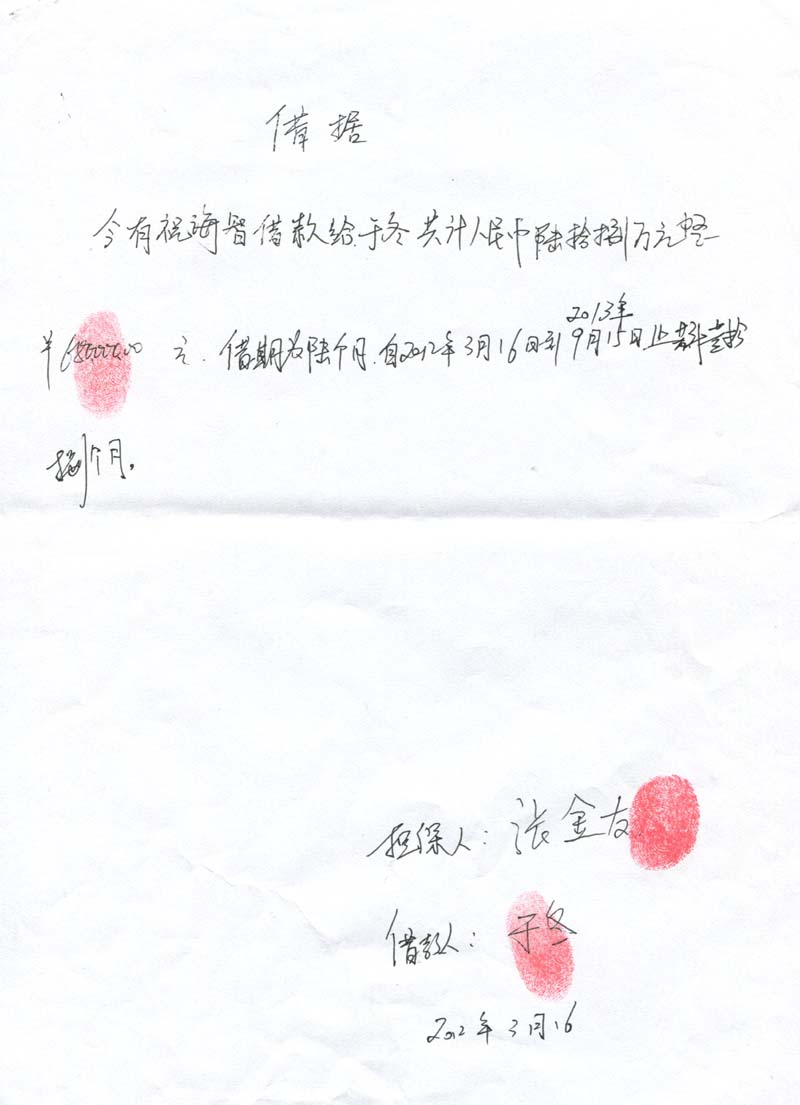 借据
今有祝海智借款给于冬共计人民币陆拾捌万元整
¥680000.00元.借期为陆个月.自2012年3月16日到2013年9月15日止共计壹拾
捌个月.
担保人:张金友
借款人:于冬
2012年3月16